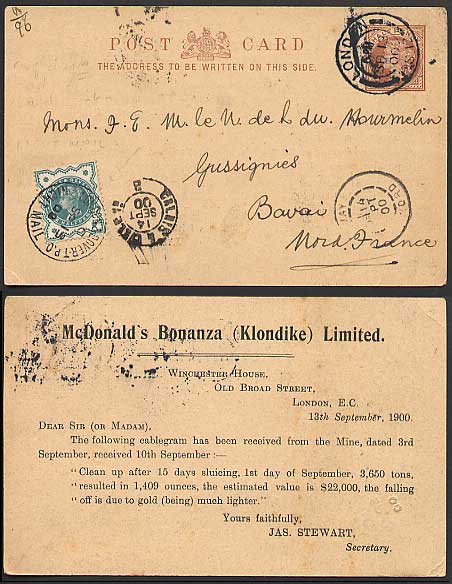 96
POST CARD
THE ADDRESS TO BE WRITTEN ON THIS SIDE.
LONDON
Mons. J. E. M. le V. de L. du Hourmelin
Gussignies
Bavai
Nord. France
CALAIS
14
SEPT
00
14
00
McDonald's Bonanza (Klondike) Limited.
Winchester House,
Old Broad Street,
London, E.C.
13th September, 1900.
Dear Sir (or Madam),
The following cablegram has been received from the Mine, dated 3rd
September, received 10th September :—
"Clean up after 15 days sluicing, 1st day of September, 3,650 tons,
"resulted in 1,409 ounces, the estimated value is $22,000, the falling
"off is due to gold (being) much lighter."
Yours faithfully,
JAS. STEWART,
Secretary.